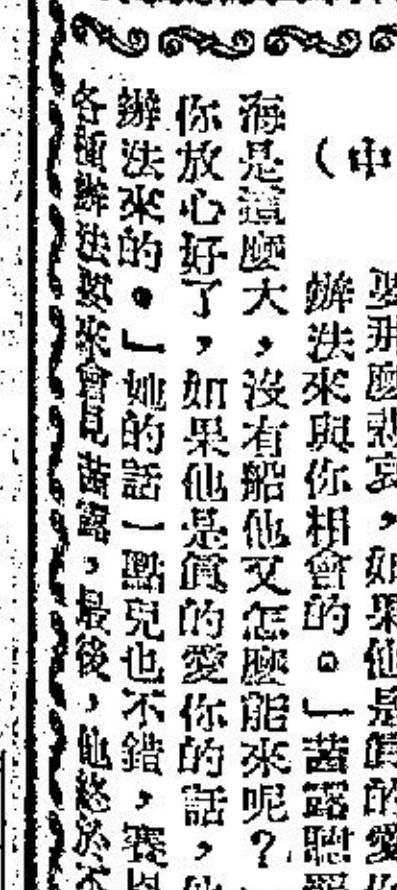 （中
要那麼悲哀，如果他是真的愛你
辦法來與你相會的。」茜露聽
海是這麼大，沒有船他又怎麼能來呢？
你放心好了，如果他是真的愛你的話，他
辦法來的。」她的話一點兒也不錯，賽恩
各種辦法要來會見茜露，最後，他終於不